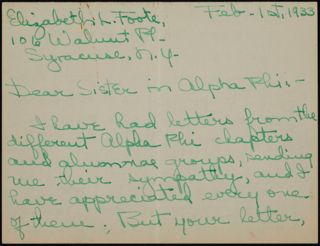 Elizabeth L. Foote, Feb - 1st, 1933
106 Walnut Pl-
Syracuse, N.Y-
Dear Sister in Alpha Phi:-
I have had letters from the
different Alpha Phi chapters
and alumnae groups, sending
me their sympathy, and I
have appreciated every one
of them. But your letter,